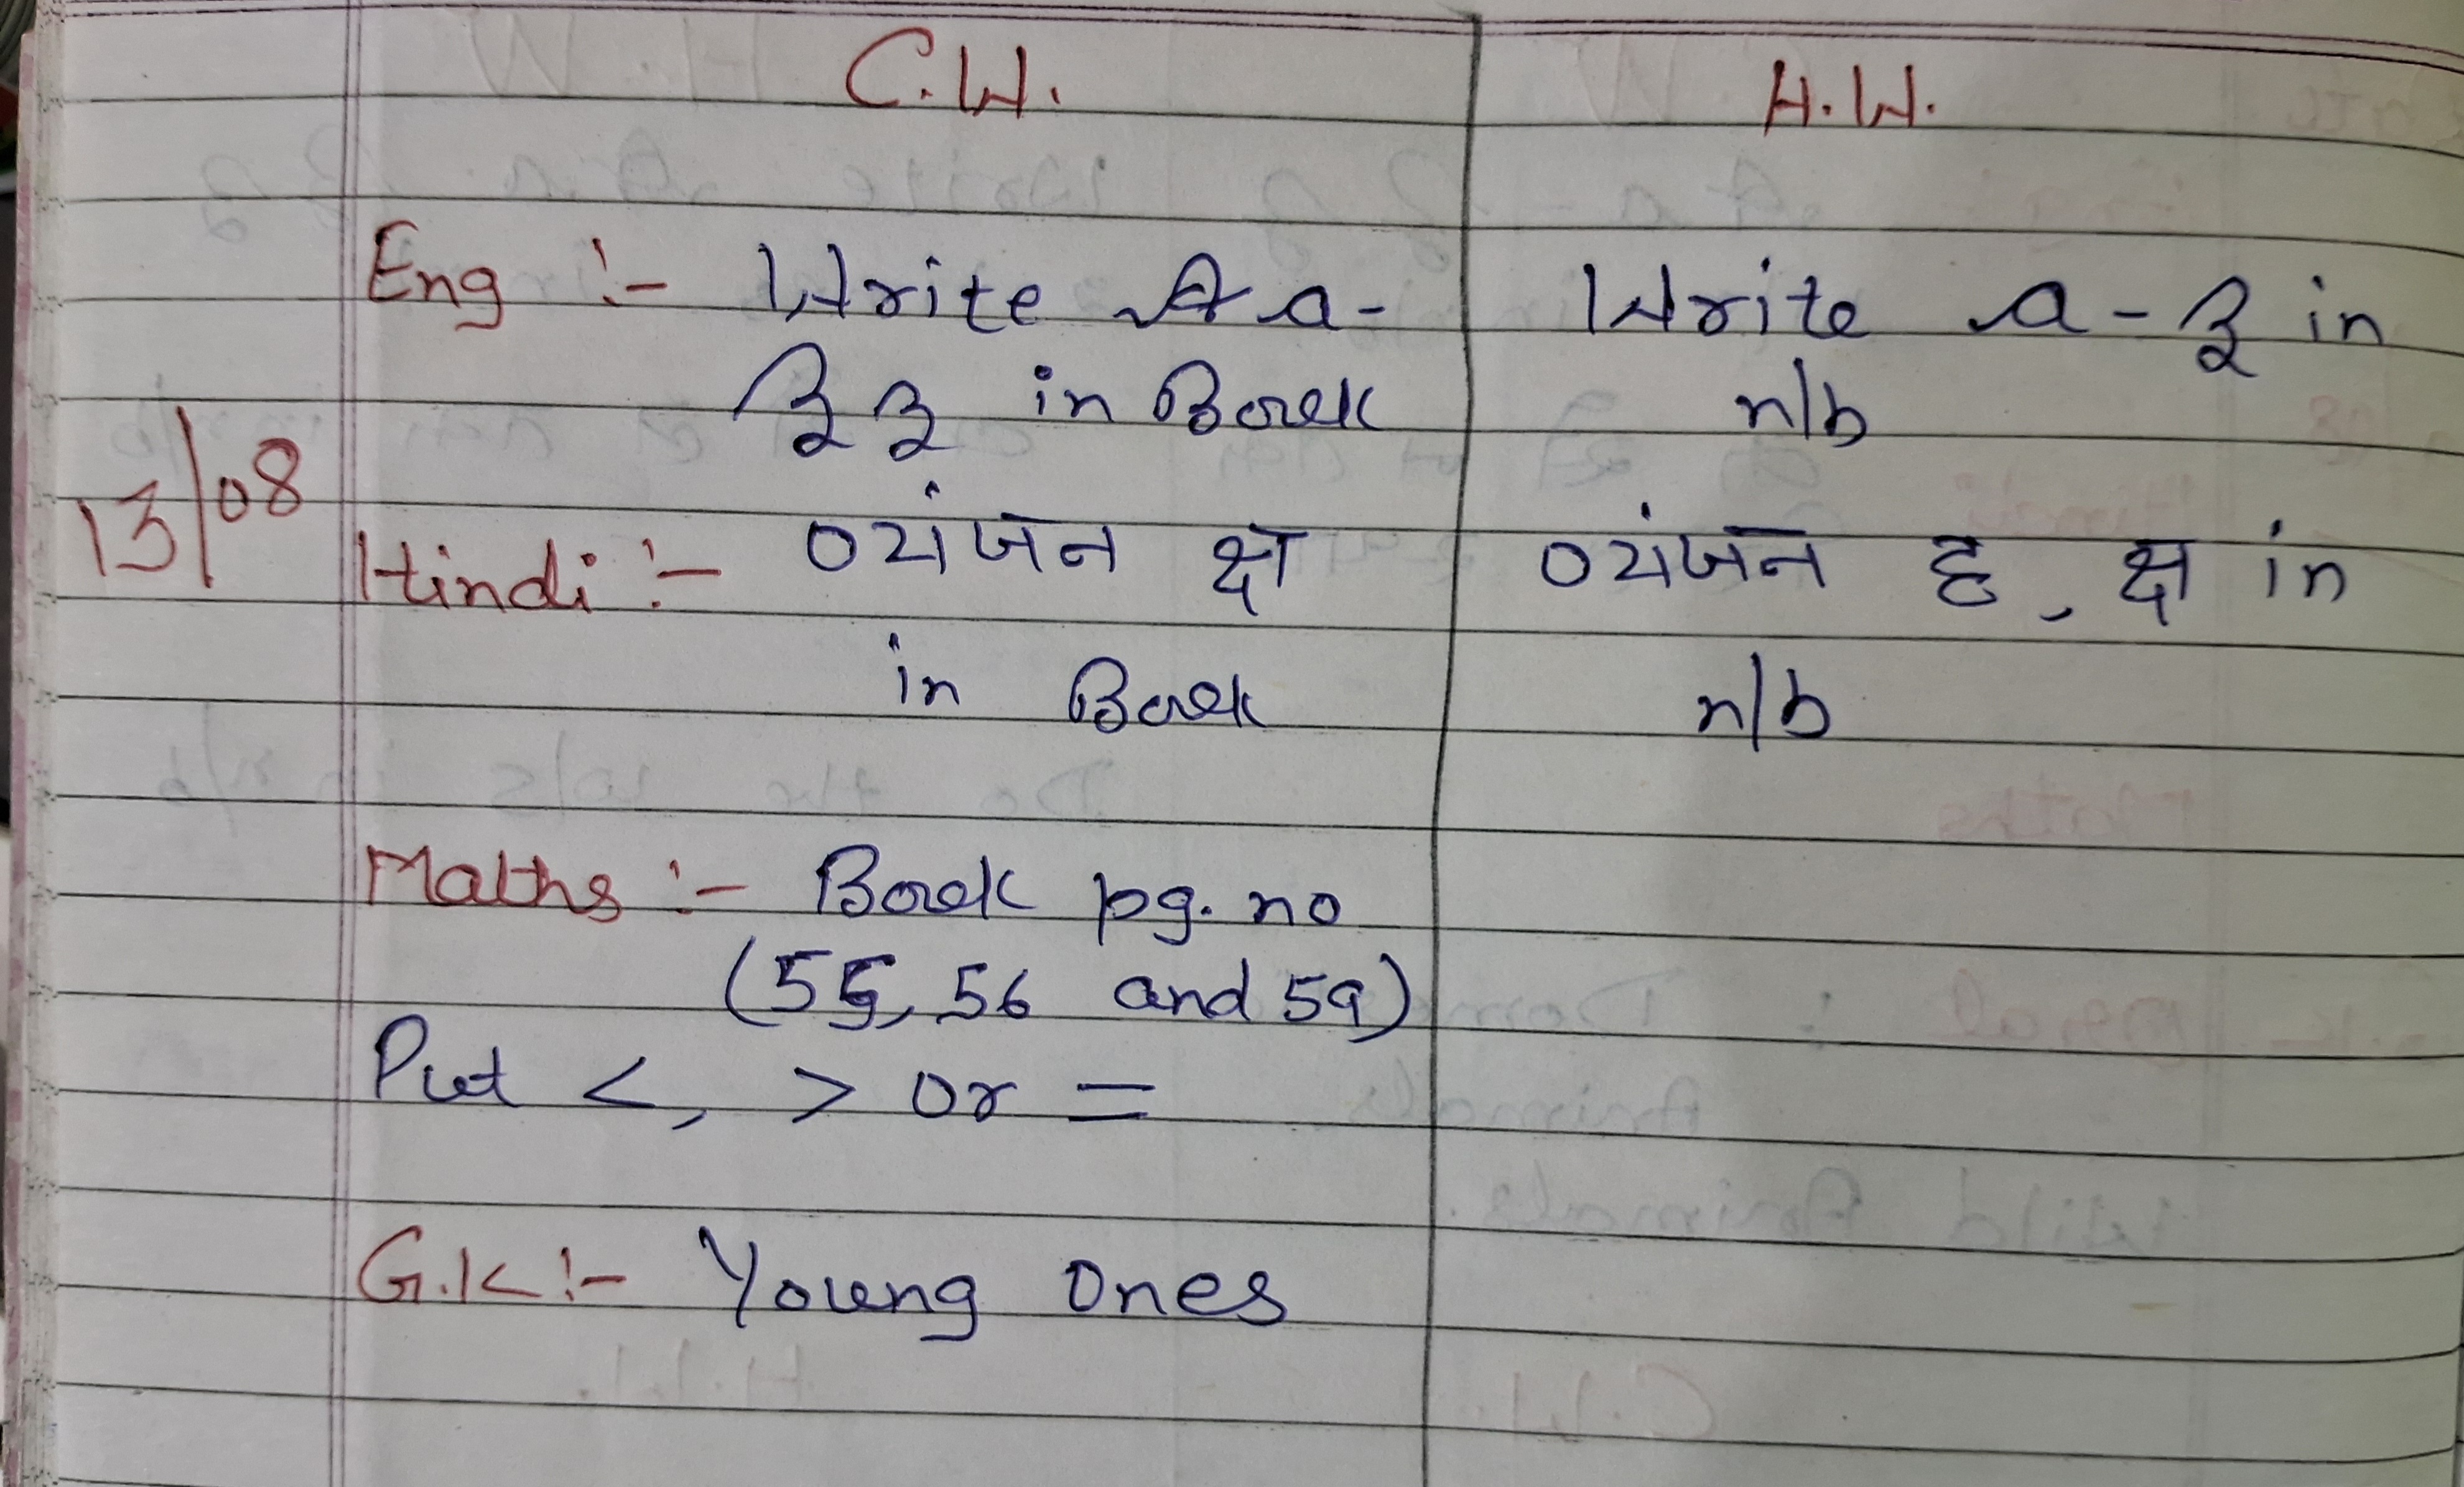 C.W. H.W.
Eng :- Write A a- Write a - z in
Z z in Book n/b
13/08
Hindi :- व्यंजन क्ष व्यंजन ह, क्ष in
in Book n/b
Maths :- Book pg. no
(55, 56 and 59)
Put <, > or =
G.K :- Young Ones